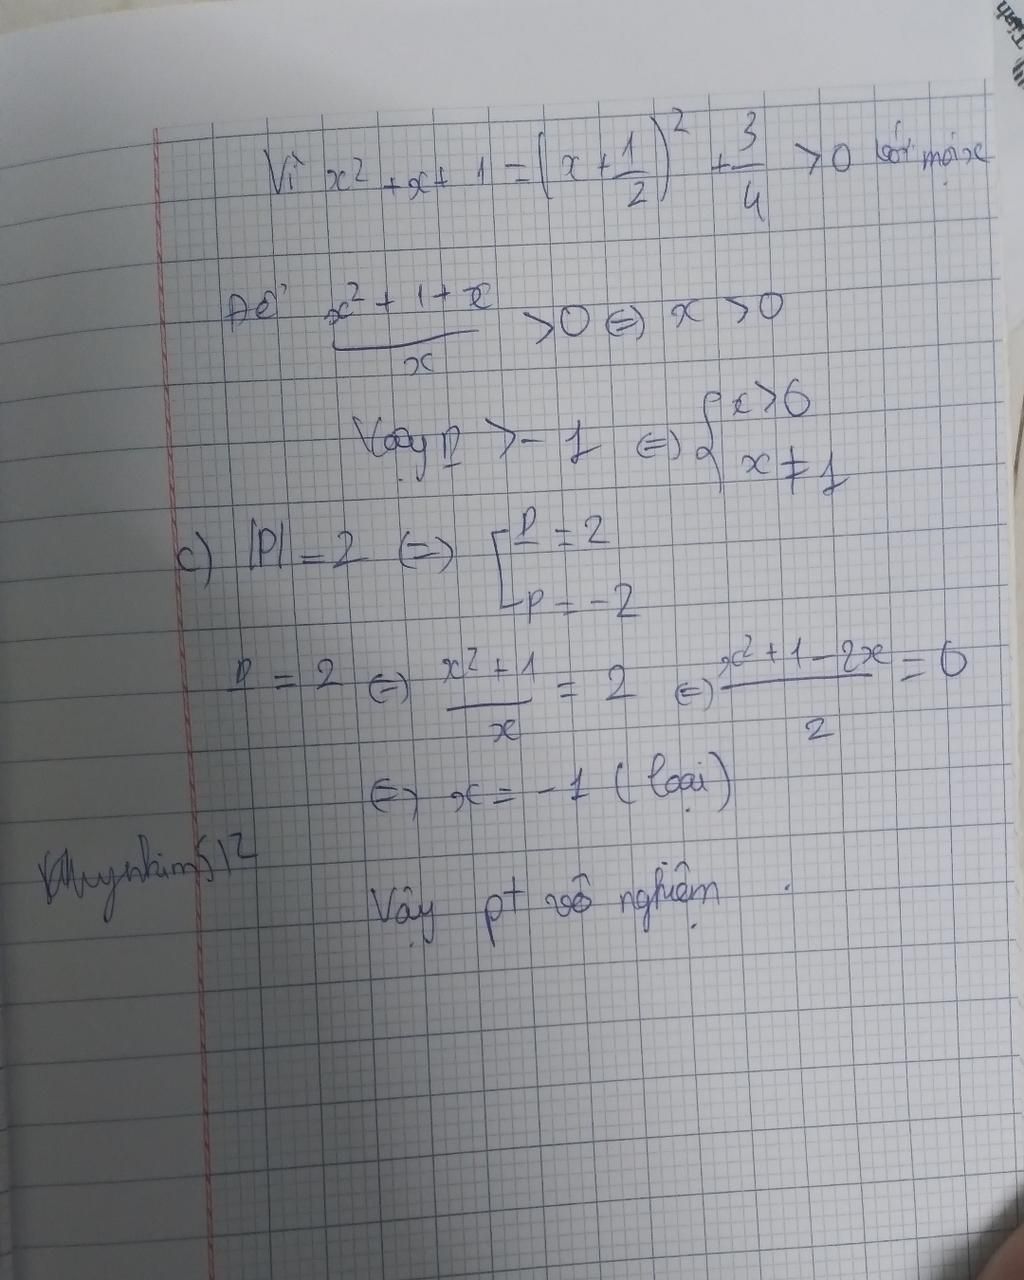 Vì x² + x + 1 = (x + 1/2)² + 3/4 > 0 với mọi x
Để (x² + 1 + x)/x > 0 ⇔ x > 0
Vậy P > -1 ⇔ { x > 0
x ≠ 1
c) |P| = 2 ⇔ [ P = 2
P = -2
P = 2 ⇔ (x² + 1)/x = 2 ⇔ (x² + 1 - 2x)/2 = 0
⇔ x = -1 (loại)
Vậy pt vô nghiệm.